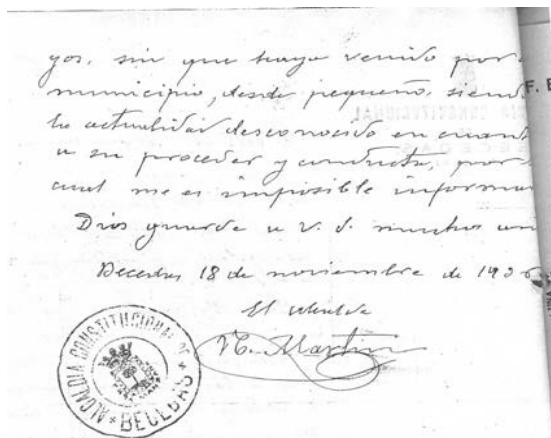 yos, sin que haya venido por
municipio, desde pequeño, siend
la actualidad desconocido en cuant
a su proceder y conducta, por
cual me es imposible informar
Dios guarde a V. S. muchos
Becedas 18 de noviembre de 19
El alcalde
Martin
ALCALDIA CONSTITUCIONAL DE
* BECEDAS *
F. E